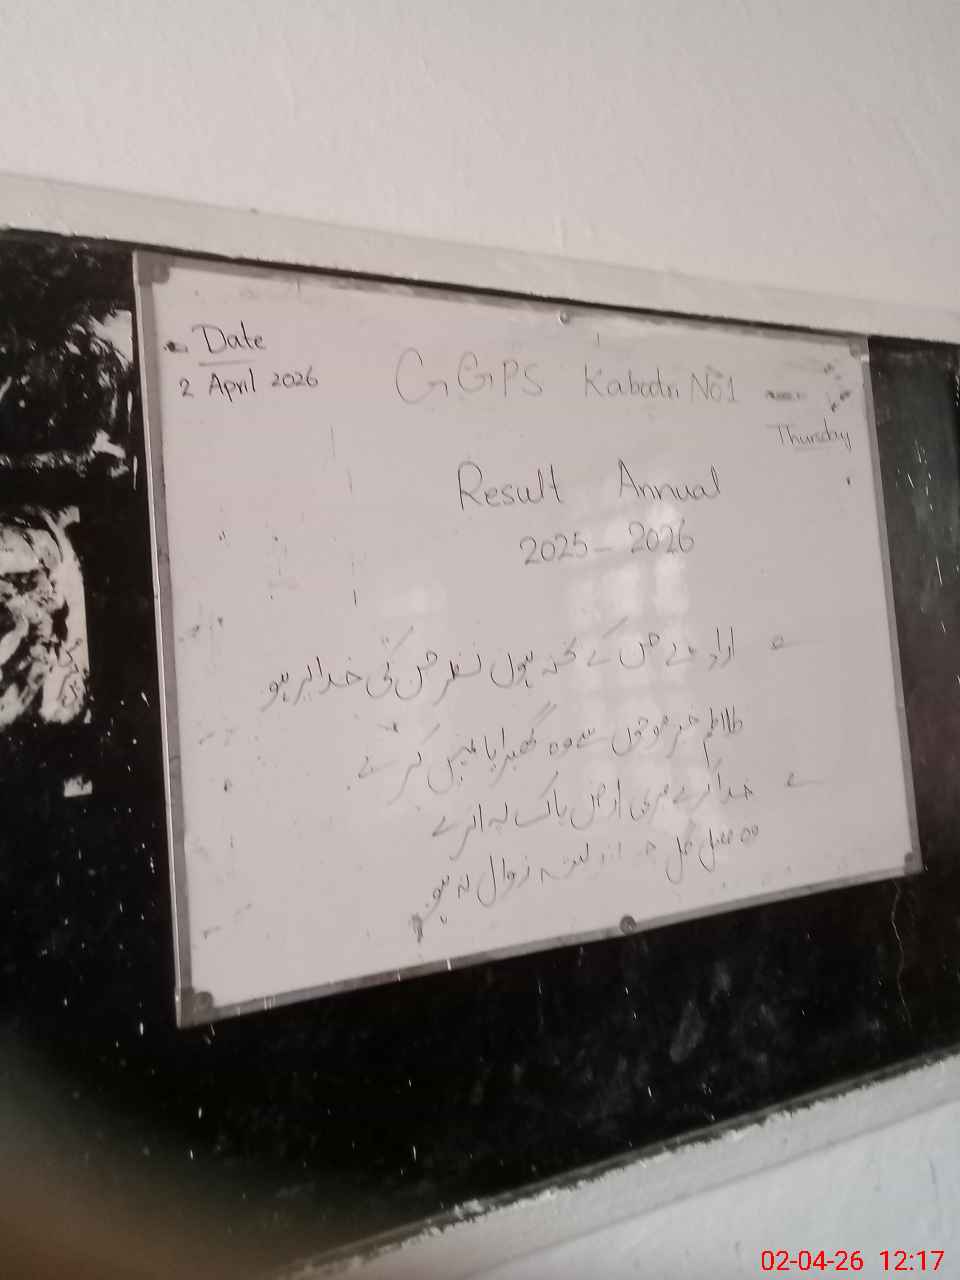 Date
2 April 2026
GGPS Kabodri No 1
Thursday
Result Annual
2025 - 2026
ارادے جن کے پختہ ہوں نظر جن کی خدا پر ہو
طلاطم خیز موجوں سے وہ گھبرایا نہیں کرتے
خدا کرے میری ارض پاک پہ اترے
وہ فصل گل جسے زوال نہ ہو
02-04-26 12:17